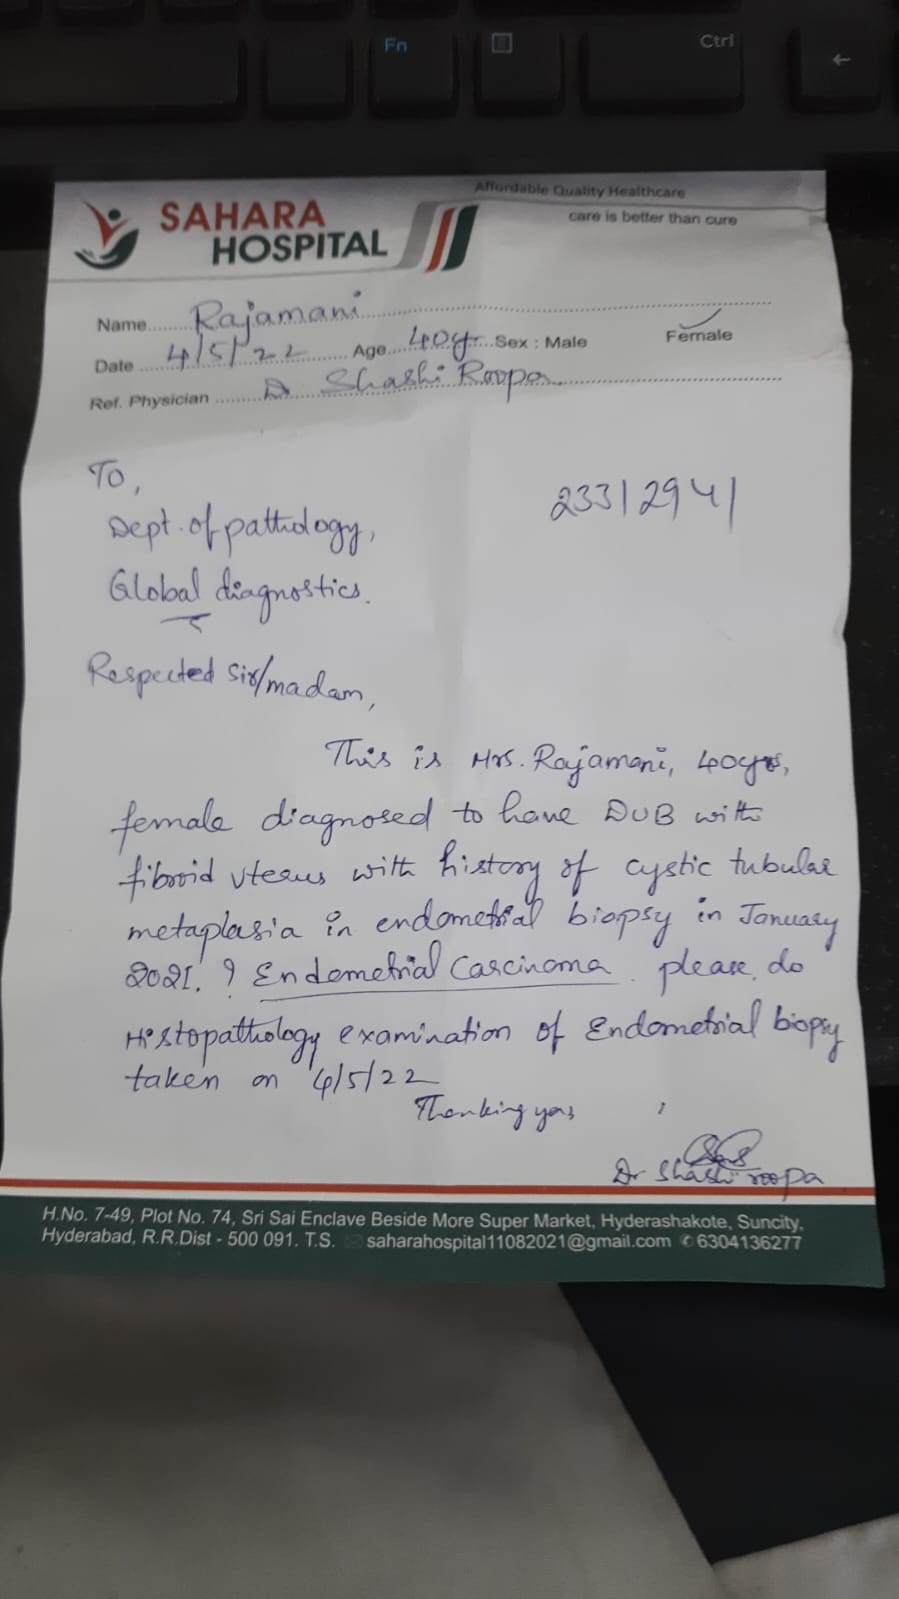 Fn
Ctrl
←
Affordable Quality Healthcare
care is better than cure
SAHARA
HOSPITAL
Name......Rajamani
Date 4/5/22 Age...40yr...Sex : Male Female
Ref. Physician Dr Shashi Roopa
To,
Dept. of pathology,
23312941
Global diagnostics.
Respected sir/madam,
This is Mrs. Rajamani, 40yrs,
female diagnosed to have DUB with
fibroid uterus with history of cystic tubular
metaplasia in endometrial biopsy in January
2021. ? Endometrial Carcinoma. please do
Histopathology examination of Endometrial biopsy
taken on 4/5/22
Thanking you,
Dr Shashi roopa
H.No. 7-49, Plot No. 74, Sri Sai Enclave Beside More Super Market, Hyderashakote, Suncity,
Hyderabad, R.R.Dist - 500 091. T.S. saharahospital11082021@gmail.com 6304136277